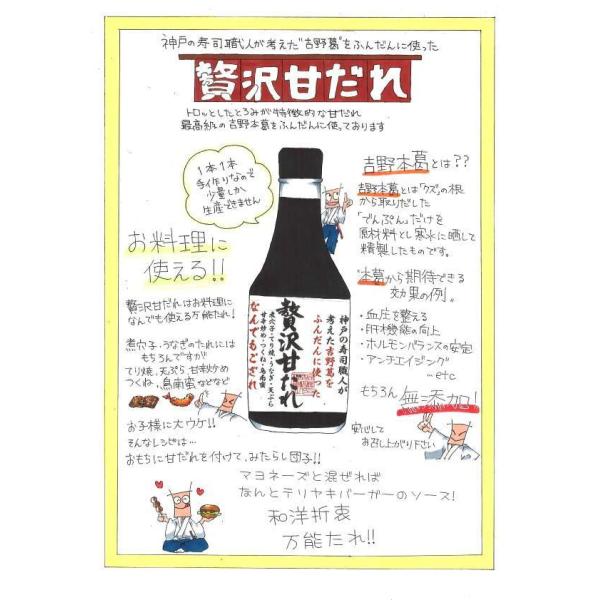 神戸の寿司職人が考えた"吉野葛"をふんだんに使った
贅沢甘だれ
トロッとしたとろみが特徴的な甘だれ
最高級の吉野本葛をふんだんに使っております
1本1本
手作りなので
少量しか
生産できません
吉野本葛とは??
吉野本葛とは「クズ」の根
から取りだした
「でんぷん」だけを
原材料とし寒水に晒して
精製したものです。
お料理に
使える!!
"本葛から期待できる
効果の例"
・血圧を整える
・肝機能の向上
・ホルモンバランスの安定
・アンチエイジング
…etc
贅沢甘だれはお料理に
なんでも使える万能たれ!
煮穴子・うなぎのたれには
もちろんですが
てり焼、天ぷら、甘辛炒め
つくね、鳥南蛮などなど
神戸の寿司職人が
考えた吉野葛を
ふんだんに使った
贅沢甘だれ
煮穴子・てり焼・うなぎ・天ぷら
甘辛炒め・つくね・鳥南蛮
なんでもござれ
もちろん
無添加!
安心して
お召し上がり下さい
お子様に大ウケ!!
そんなレシピは…
おもちに甘だれを付けて、みたらし団子!!
マヨネーズと混ぜれば
なんとテリヤキバーガーのソース!
和洋折衷
万能たれ!!